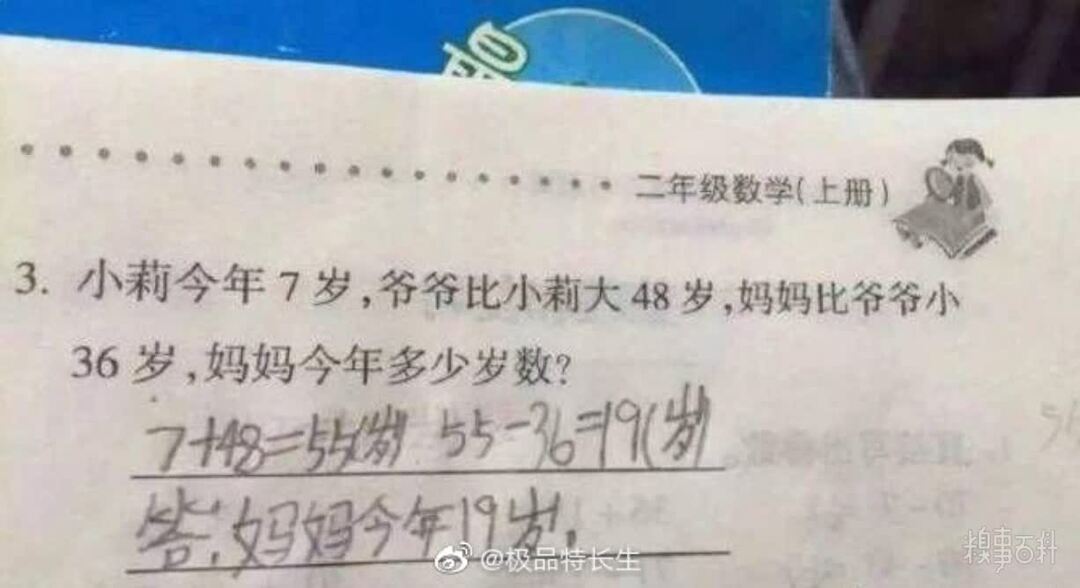 二年级数学(上册)
3. 小莉今年7岁,爷爷比小莉大48岁,妈妈比爷爷小
36岁,妈妈今年多少岁数?
7+48=55(岁) 55-36=19(岁)
答:妈妈今年19岁。
@极品特长生
糗事百科